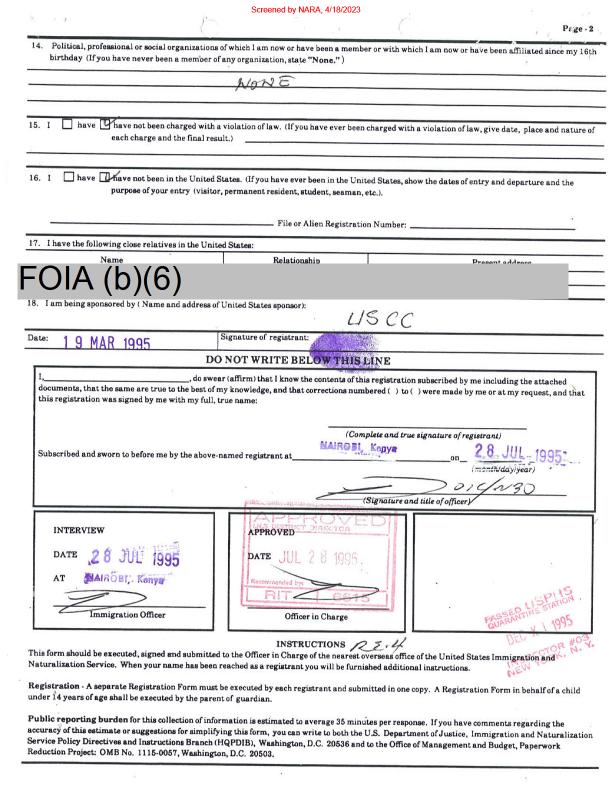 Screened by NARA, 4/18/2023
Page - 2
14. Political, professional or social organizations of which I am now or have been a member or with which I am now or have been affiliated since my 16th
birthday (If you have never been a member of any organization, state "None.")
NONE
15. I have have not been charged with a violation of law. (If you have ever been charged with a violation of law, give date, place and nature of
each charge and the final result.)
16. I have have not been in the United States. (If you have ever been in the United States, show the dates of entry and departure and the
purpose of your entry (visitor, permanent resident, student, seaman, etc.).
File or Alien Registration Number:
17. I have the following close relatives in the United States:
Name Relationship Present address
FOIA (b)(6)
18. I am being sponsored by ( Name and address of United States sponsor):
USCC
Date: 19 MAR 1995 Signature of registrant:
DO NOT WRITE BELOW THIS LINE
I, , do swear (affirm) that I know the contents of this registration subscribed by me including the attached
documents, that the same are true to the best of my knowledge, and that corrections numbered ( ) to ( ) were made by me or at my request, and that
this registration was signed by me with my full, true name:
(Complete and true signature of registrant)
Subscribed and sworn to before me by the above-named registrant at NAIROBI, Kenya on 28 JUL 1995
(month/day/year)
OIC/NBO
(Signature and title of officer)
INTERVIEW
DATE 28 JUL 1995
AT NAIROBI, Kenya
Immigration Officer
APPROVED
INS DISTRICT DIRECTOR
APPROVED
DATE JUL 28 1995
Recommended by:
RIT
Officer in Charge
PASSED USPHS
QUARANTINE STATION
DEC 1995
INSPECTOR #03
NEW YORK, N. Y.
INSTRUCTIONS RE-4
This form should be executed, signed and submitted to the Officer in Charge of the nearest overseas office of the United States Immigration and
Naturalization Service. When your name has been reached as a registrant you will be furnished additional instructions.
Registration - A separate Registration Form must be executed by each registrant and submitted in one copy. A Registration Form in behalf of a child
under 14 years of age shall be executed by the parent of guardian.
Public reporting burden for this collection of information is estimated to average 35 minutes per response. If you have comments regarding the
accuracy of this estimate or suggestions for simplifying this form, you can write to both the U.S. Department of Justice, Immigration and Naturalization
Service Policy Directives and Instructions Branch (HQPDIB), Washington, D.C. 20536 and to the Office of Management and Budget, Paperwork
Reduction Project: OMB No. 1115-0057, Washington, D.C. 20503.